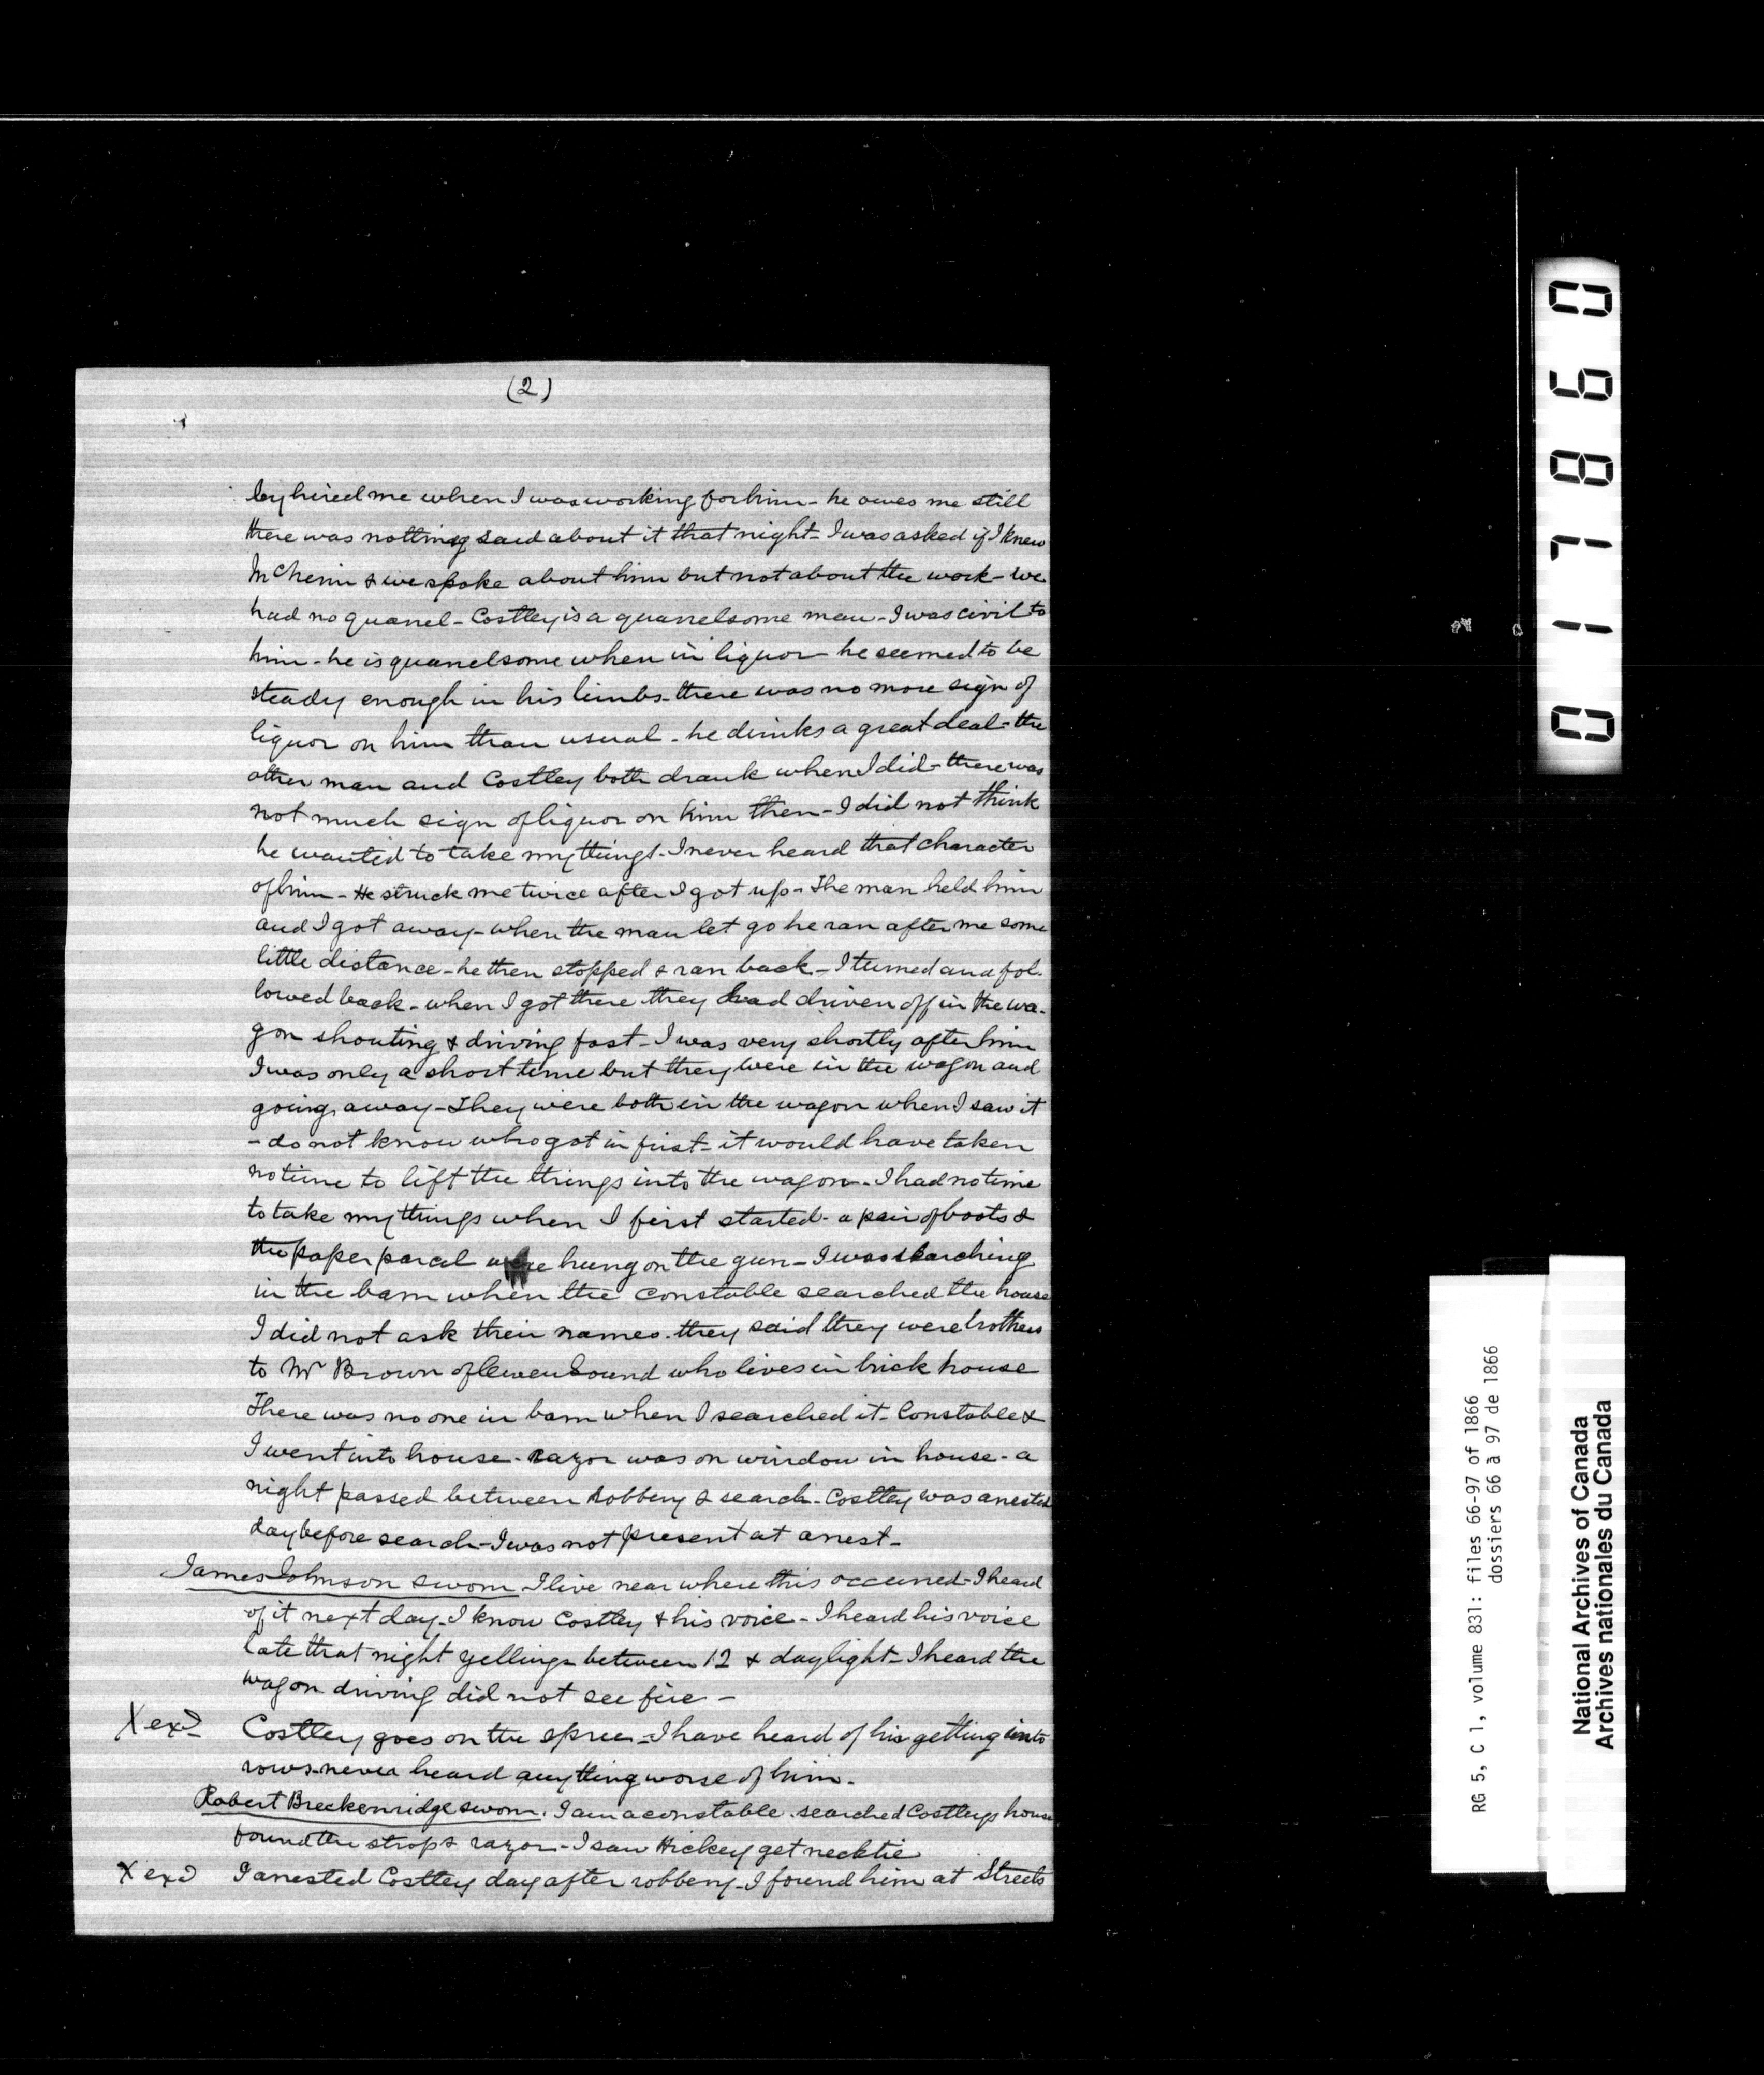 (2)
ley hired me when I was working for him - he owes me still
there was nothing said about it that night - I was asked if I knew
& we spoke about him but not about the work - we
had no quarrel - Costley is a quarrelsome man - I was civil to
him - he is quarrelsome when in liquor - he seemed to be
steady enough in his limbs - there was no more sign of
liquor on him than usual - he drinks a great deal - the
other man and Costley both drank when I did - there was
not much sign of liquor on him then - I did not think
he wanted to take my things - I never heard that character
of him - He struck me twice after I got up - The man held him
and I got away - when the man let go he ran after me some
little distance - he then stopped & ran back - I turned and fol-
lowed back - when I got there they had driven off in the wa-
gon shouting & driving fast - I was very shortly after him
I was only a short time but they were in the wagon and
going away - They were both in the wagon when I saw it
- do not know who got in first - it would have taken
no time to lift the things into the wagon - I had no time
to take my things when I first started - a pair of boots &
the paper parcel were hung on the gun - I was searching
in the barn when the constable searched the house
I did not ask their names. they said they were brothers
to Mr Brown of Owen Sound who lives in brick house
There was no one in barn when I searched it - Constable &
I went into house - Razor was on window in house - a
night passed between robbery & search - Costley was arrested
day before search - I was not present at arrest -
James Johnson sworn I live near where this occurred - I heard
of it next day - I know Costley & his voice - I heard his voice
late that night yelling between 12 & daylight - I heard the
wagon driving did not see fire -
X exd Costley goes on the spree - I have heard of his getting into
rows - never heard anything worse of him -
Robert Breckenridge sworn. I am a constable. searched Costleys house
found the strop & razor - I saw Hickey get necktie
X exd I arrested Costley day after robbery - I found him at Streets
017860
RG 5, C 1, volume 831: files 66-97 of 1866
dossiers 66 à 97 de 1866
National Archives of Canada
Archives nationales du Canada